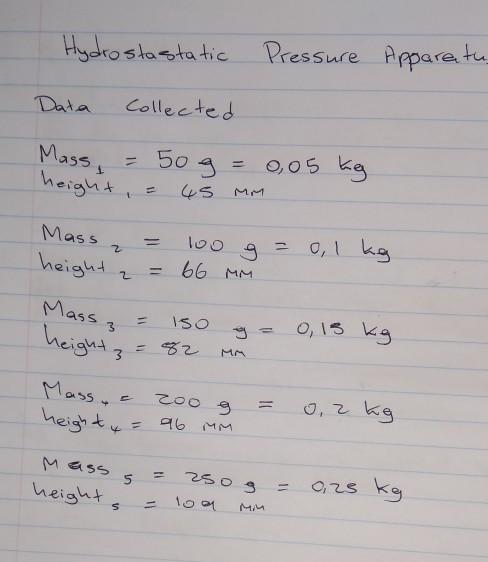 Hydrostastatic Pressure Apparatu
Data Collected
Mass₁ = 50 g = 0,05 kg
height₁ = 45 mm
Mass₂ = 100 g = 0,1 kg
height₂ = 66 mm
Mass₃ = 150 g = 0,15 kg
height₃ = 82 mm
Mass₄ = 200 g = 0,2 kg
height₄ = 96 mm
Mass₅ = 250 g = 0,25 kg
height₅ = 109 mm